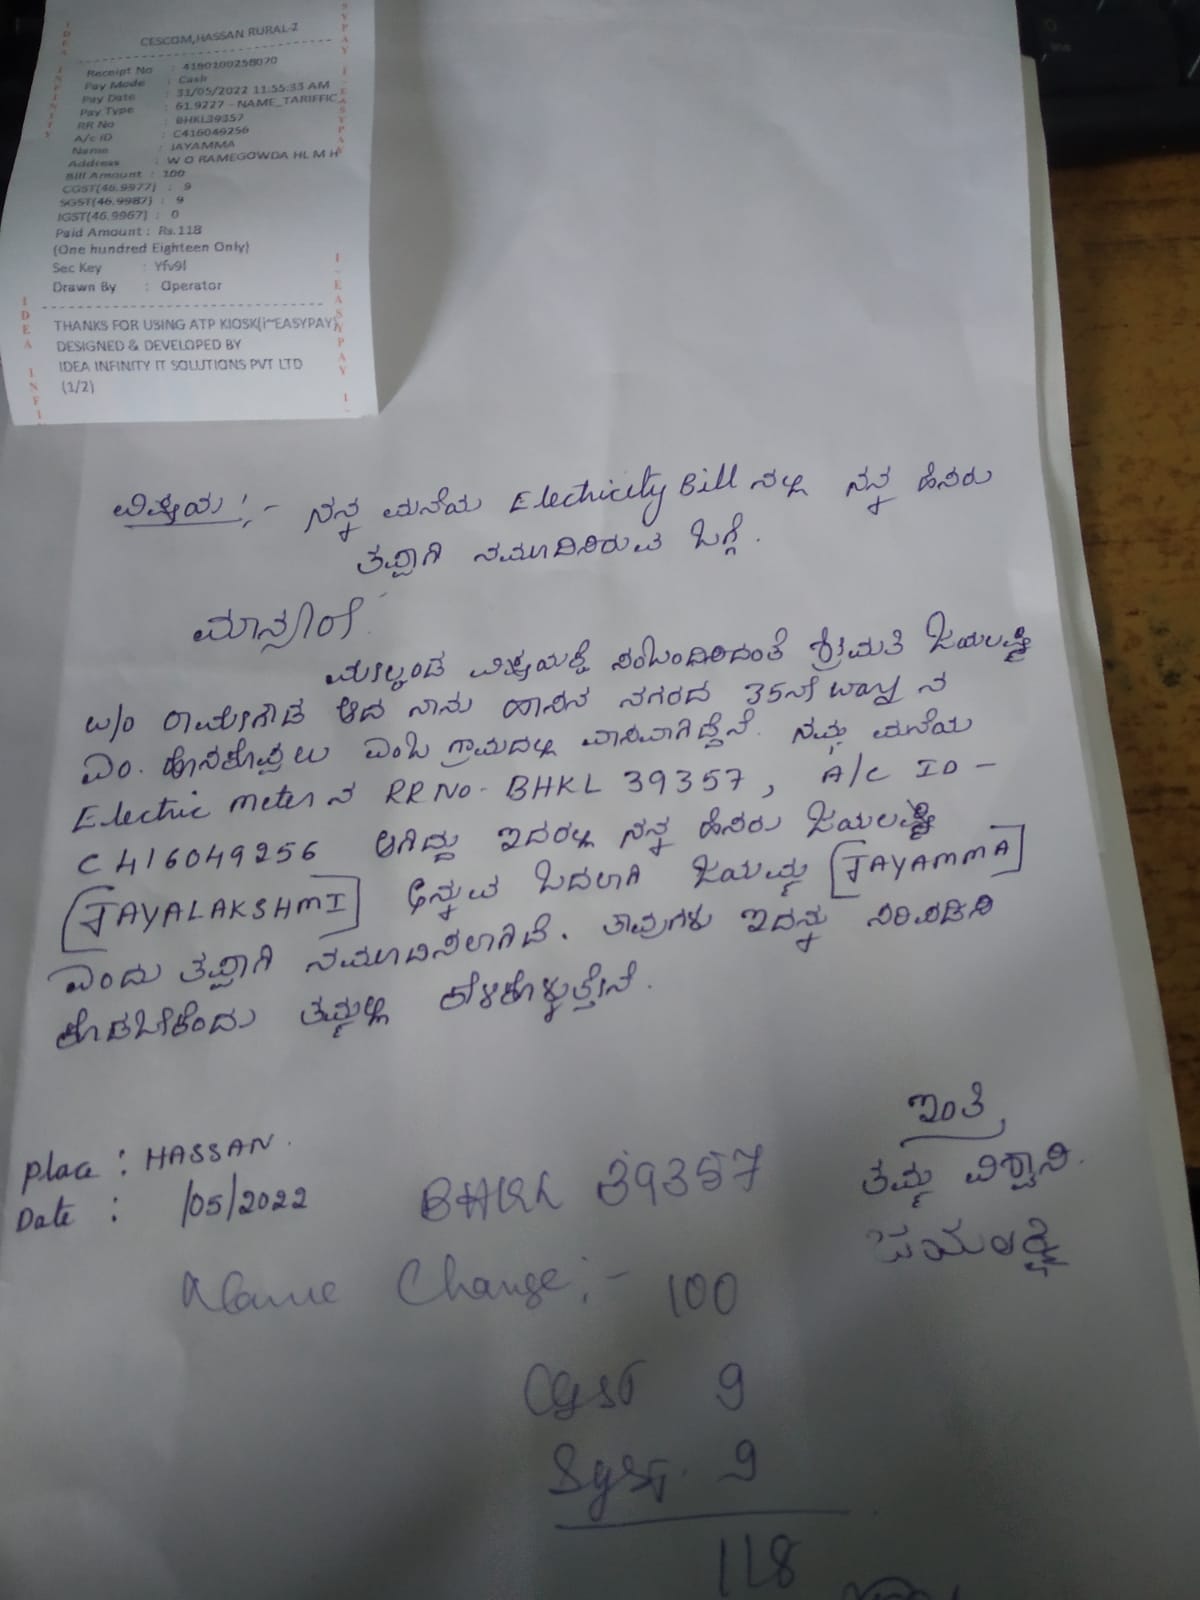 CESCOM,HASSAN RURAL-2
Receipt No : 4180100258070
Pay Mode : Cash
Pay Date : 31/05/2022 11:55:33 AM
Pay Type : 61.9227 - NAME_TARIFFIC
RR No : BHKL39357
A/c ID : C416049256
Name : JAYAMMA
Address : W O RAMEGOWDA HL M H
Bill Amount : 100
CGST(46.9977) : 9
SGST(46.9987) : 9
IGST(46.9967) : 0
Paid Amount : Rs.118
(One hundred Eighteen Only)
Sec Key : Yfv9l
Drawn By : Operator
THANKS FOR USING ATP KIOSK(i~EASYPAY)
DESIGNED & DEVELOPED BY
IDEA INFINITY IT SOLUTIONS PVT LTD
(1/2)
ವಿಷಯ :- ನನ್ನ ಮನೆಯ Electricity Bill ನಲ್ಲಿ ನನ್ನ ಹೆಸರು
ತಪ್ಪಾಗಿ ನಮೂದಿಸಿರುವ ಬಗ್ಗೆ.
ಮಾನ್ಯರೇ
ಮೇಲ್ಕಂಡ ವಿಷಯಕ್ಕೆ ಸಂಬಂಧಿಸಿದಂತೆ ಶ್ರೀಮತಿ ಜಯಲಕ್ಷ್ಮಿ
w/o ರಾಮೇಗೌಡ ಆದ ನಾನು ಹಾಸನ ನಗರದ 35ನೇ way ನ
ಎಂ. ಹೊಸಕೊಪ್ಪಲು ಎಂಬ ಗ್ರಾಮದಲ್ಲಿ ವಾಸವಾಗಿದ್ದೇನೆ. ನಮ್ಮ ಮನೆಯ
Electric meter ನ RR No - BHKL 39357, A/c ID -
C416049256 ಆಗಿದ್ದು ಇದರಲ್ಲಿ ನನ್ನ ಹೆಸರು ಜಯಲಕ್ಷ್ಮಿ
[JAYALAKSHMI] ಎನ್ನುವ ಬದಲಾಗಿ ಜಯಮ್ಮ [JAYAMMA]
ಎಂದು ತಪ್ಪಾಗಿ ನಮೂದಿಸಲಾಗಿದೆ. ತಾವುಗಳು ಇದನ್ನು ಸರಿಪಡಿಸಿ
ಕೊಡಬೇಕೆಂದು ತಮ್ಮಲ್ಲಿ ಕೇಳಿಕೊಳ್ಳುತ್ತೇನೆ.
Place : HASSAN.
ಇಂತಿ
Date : /05/2022
BHKL 39357
ತಮ್ಮ ವಿಶ್ವಾಸಿ.
ಜಯಲಕ್ಷ್ಮಿ
Name Change :- 100
CGST 9
SGST. 9
118